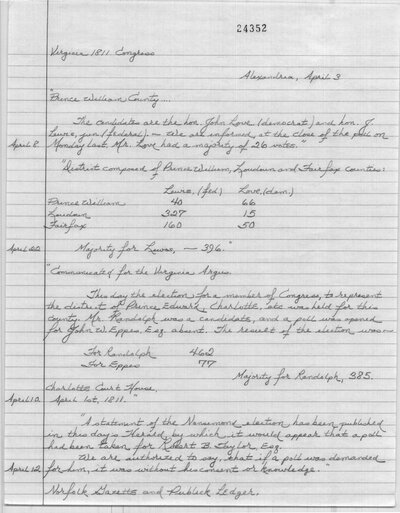 24352
Virginia 1811 Congress
Alexandria, April 3
"Prince William County...
The candidates are the hon. John Love (democrat) and hon. J.
Lewis, jun (federal). – We are informed, at the close of the poll on
April 8 Monday last, Mr. Love had a majority of 26 votes."
"District composed of Prince William, Loudoun and Fairfax counties:
Lewis, (fed) Love, (dem)
Prince William 40 66
Loudoun 327 15
Fairfax 160 50
April 22 Majority for Lewis, – 396."
"Communicated for the Virginia Argus.
This day the election for a member of Congress, to represent
the district of Prince Edward, Charlotte, &c was held for this
county. Mr. Randolph was a candidate, and a poll was opened
for John W. Eppes, Esq. absent. The result of the election was –
For Randolph 462
For Eppes 77
Majority for Randolph, 385.
Charlotte Court House
April 12 April 1st, 1811."
"A statement of the Nansemond election has been published
in this day's Herald, by which it would appear that a poll
had been taken for Robert B. Taylor, Esq.
We are authorized to say, that if a poll was demanded
April 12 for him, it was without his consent or knowledge."
Norfolk Gazette and Publick Ledger.